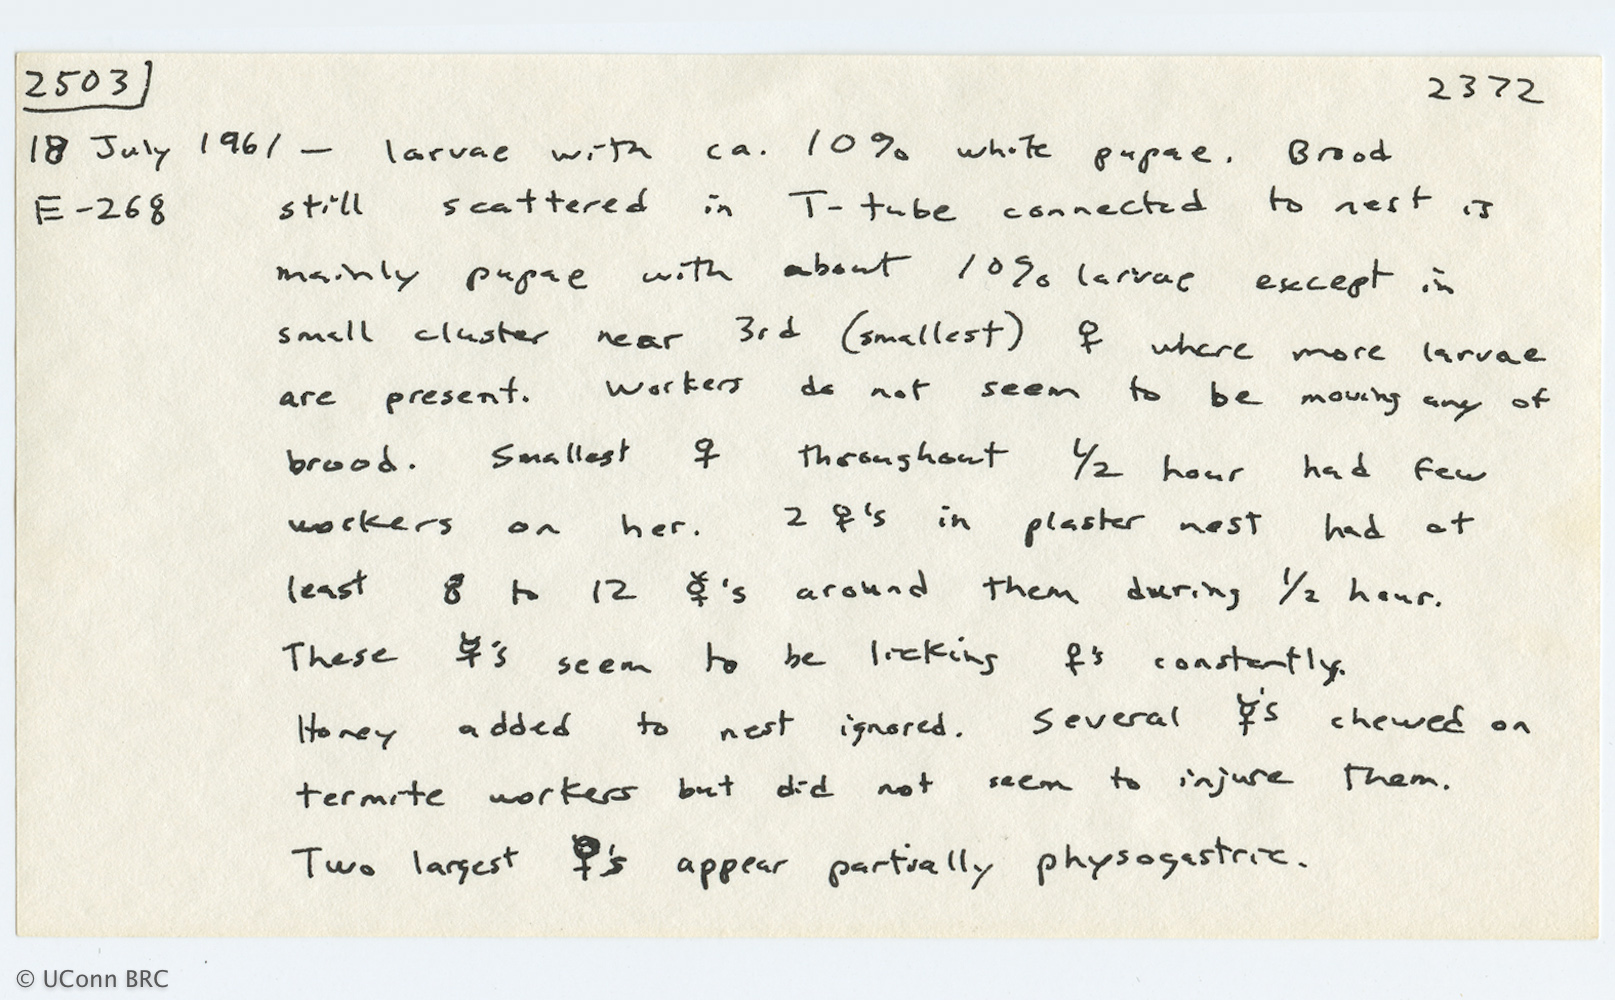 2503 2372
18 July 1961 — larvae with ca. 10% white pupae. Brood
E-268 still scattered in T-tube connected to nest is
mainly pupae with about 10% larvae except in
small cluster near 3rd (smallest) ♀ where more larvae
are present. Workers do not seem to be moving any of
brood. Smallest ♀ throughout 1/2 hour had few
workers on her. 2 ♀'s in plaster nest had at
least 8 to 12 ☿'s around them during 1/2 hour.
These ☿'s seem to be licking ♀'s constantly.
Honey added to nest ignored. Several ☿'s chewed on
termite workers but did not seem to injure them.
Two largest ♀'s appear partially physogastric.
© UConn BRC